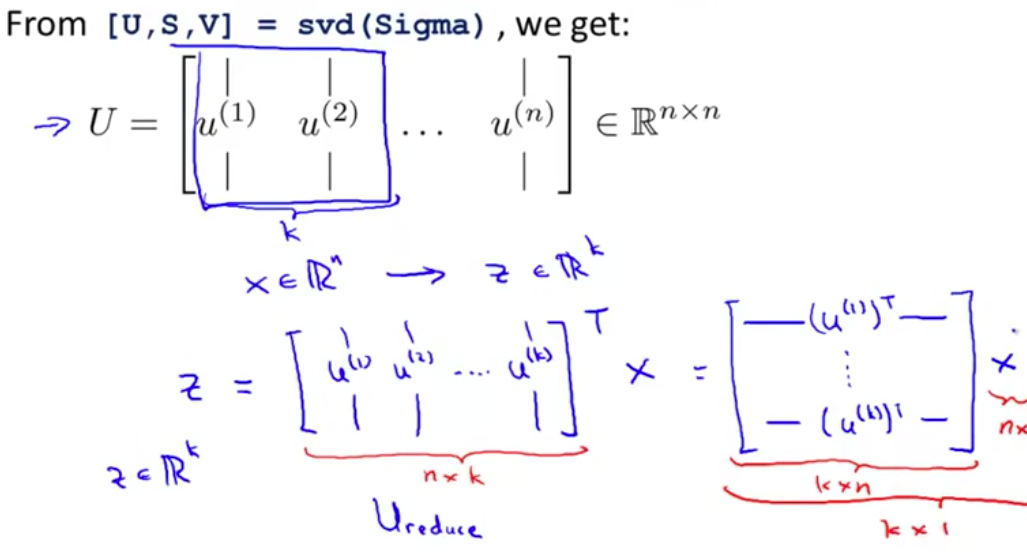 From [U,S,V] = svd(Sigma), we get:
→ U = [ u^(1) u^(2) ... u^(n) ] ∈ ℝ^{n×n}
k
x ∈ ℝ^n → z ∈ ℝ^k
z = [ u^(1) u^(2) .... u^(k) ]^T x = [ —(u^(1))^T— ⋮ —(u^(k))^T— ] x
z ∈ ℝ^k
n×k
k×n
n×
Ureduce
k×1